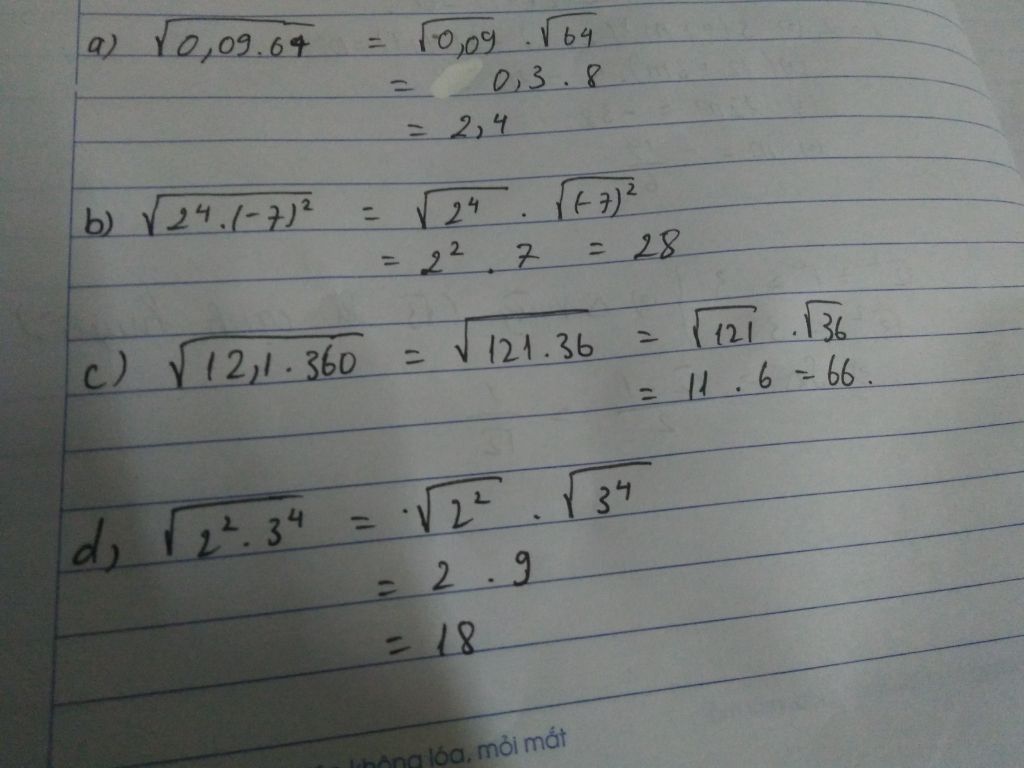 a) √0,09.64 = √0,09 . √64
= 0,3 . 8
= 2,4
b) √2⁴.(-7)² = √2⁴ . √(-7)²
= 2² . 7 = 28
c) √12,1.360 = √121.36 = √121 . √36
= 11 . 6 = 66.
d, √2².3⁴ = √2² . √3⁴
= 2 . 9
= 18
không lóa, mỏi mắt